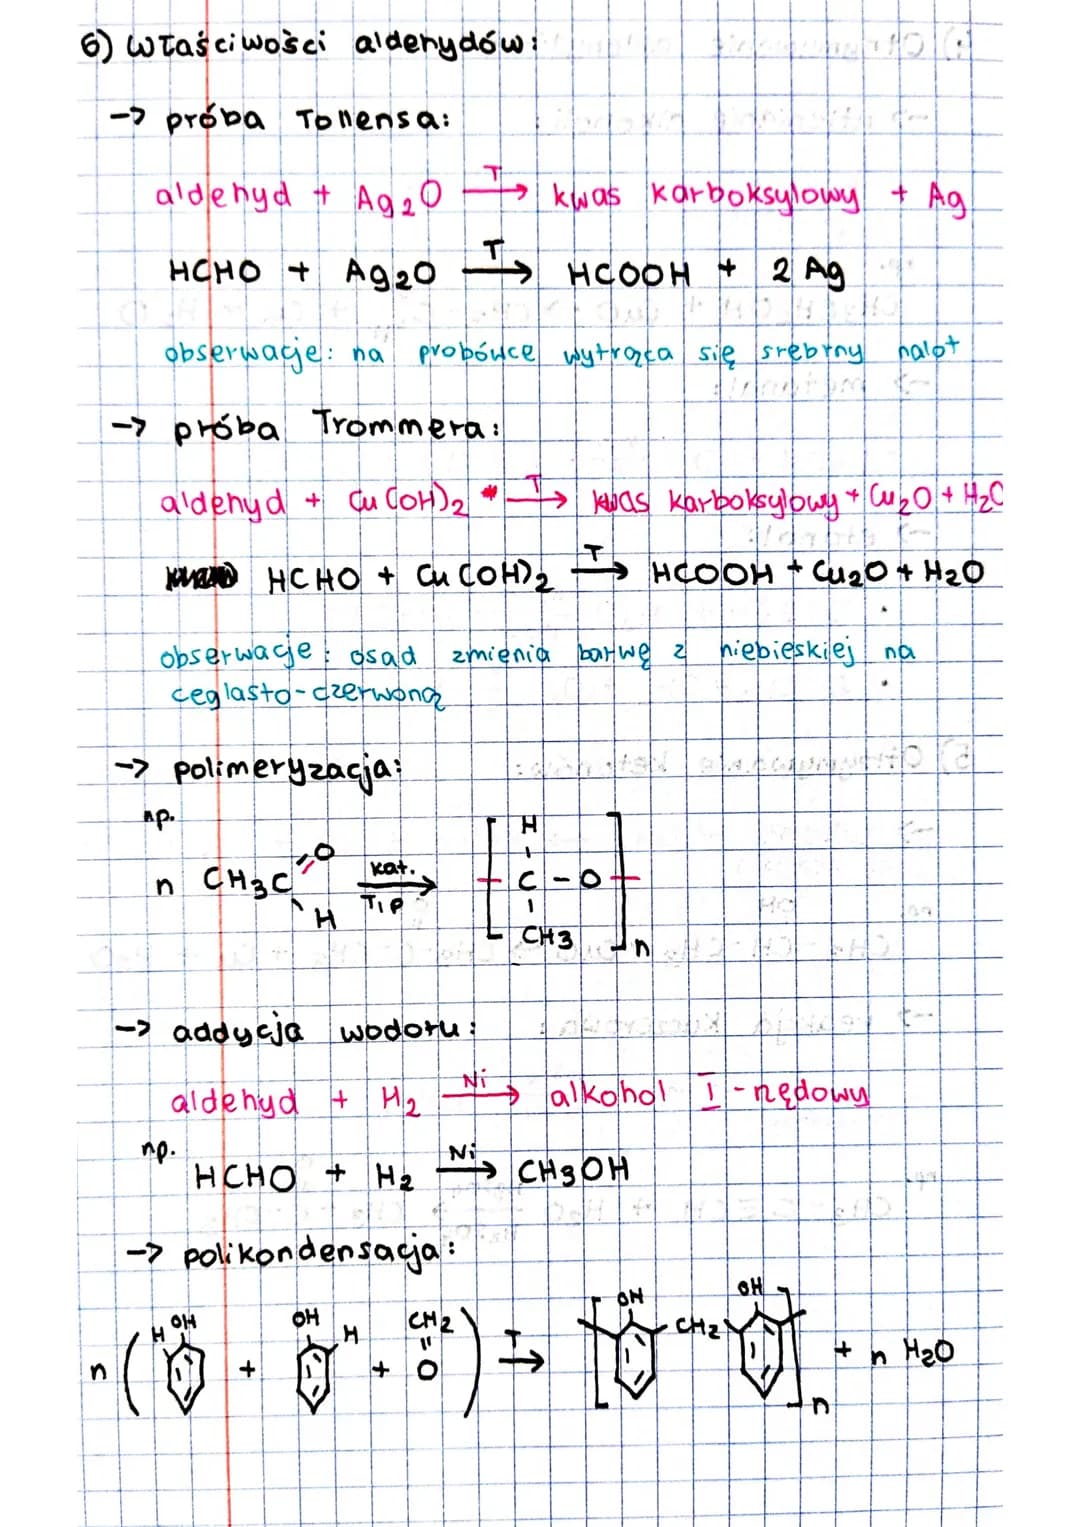 6) Właściwości aldehydów:
-> próba Tollensa:
aldehyd + Ag2O T→ kwas karboksylowy + Ag
HCHO + Ag2O T→ HCOOH + 2 Ag
obserwacje: na probówce wytrąca się srebrny nalot
-> próba Trommera:
aldehyd + Cu(OH)2 T→ kwas karboksylowy + Cu2O + H2O
HCHO + Cu(OH)2 T→ HCOOH + Cu2O + H2O
obserwacje: osad zmienia barwę z niebieskiej na
ceglasto-czerwoną
-> polimeryzacja:
np.
n CH3C =O - H kat. T,P → [ H - C - O - CH3 ]n
-> addycja wodoru:
aldehyd + H2 Ni→ alkohol I-rzędowy
np.
HCHO + H2 Ni→ CH3OH
-> polikondensacja:
n ( H OH + OH H + CH2 = O ) T→ [ OH CH2 OH ]n + n H2O